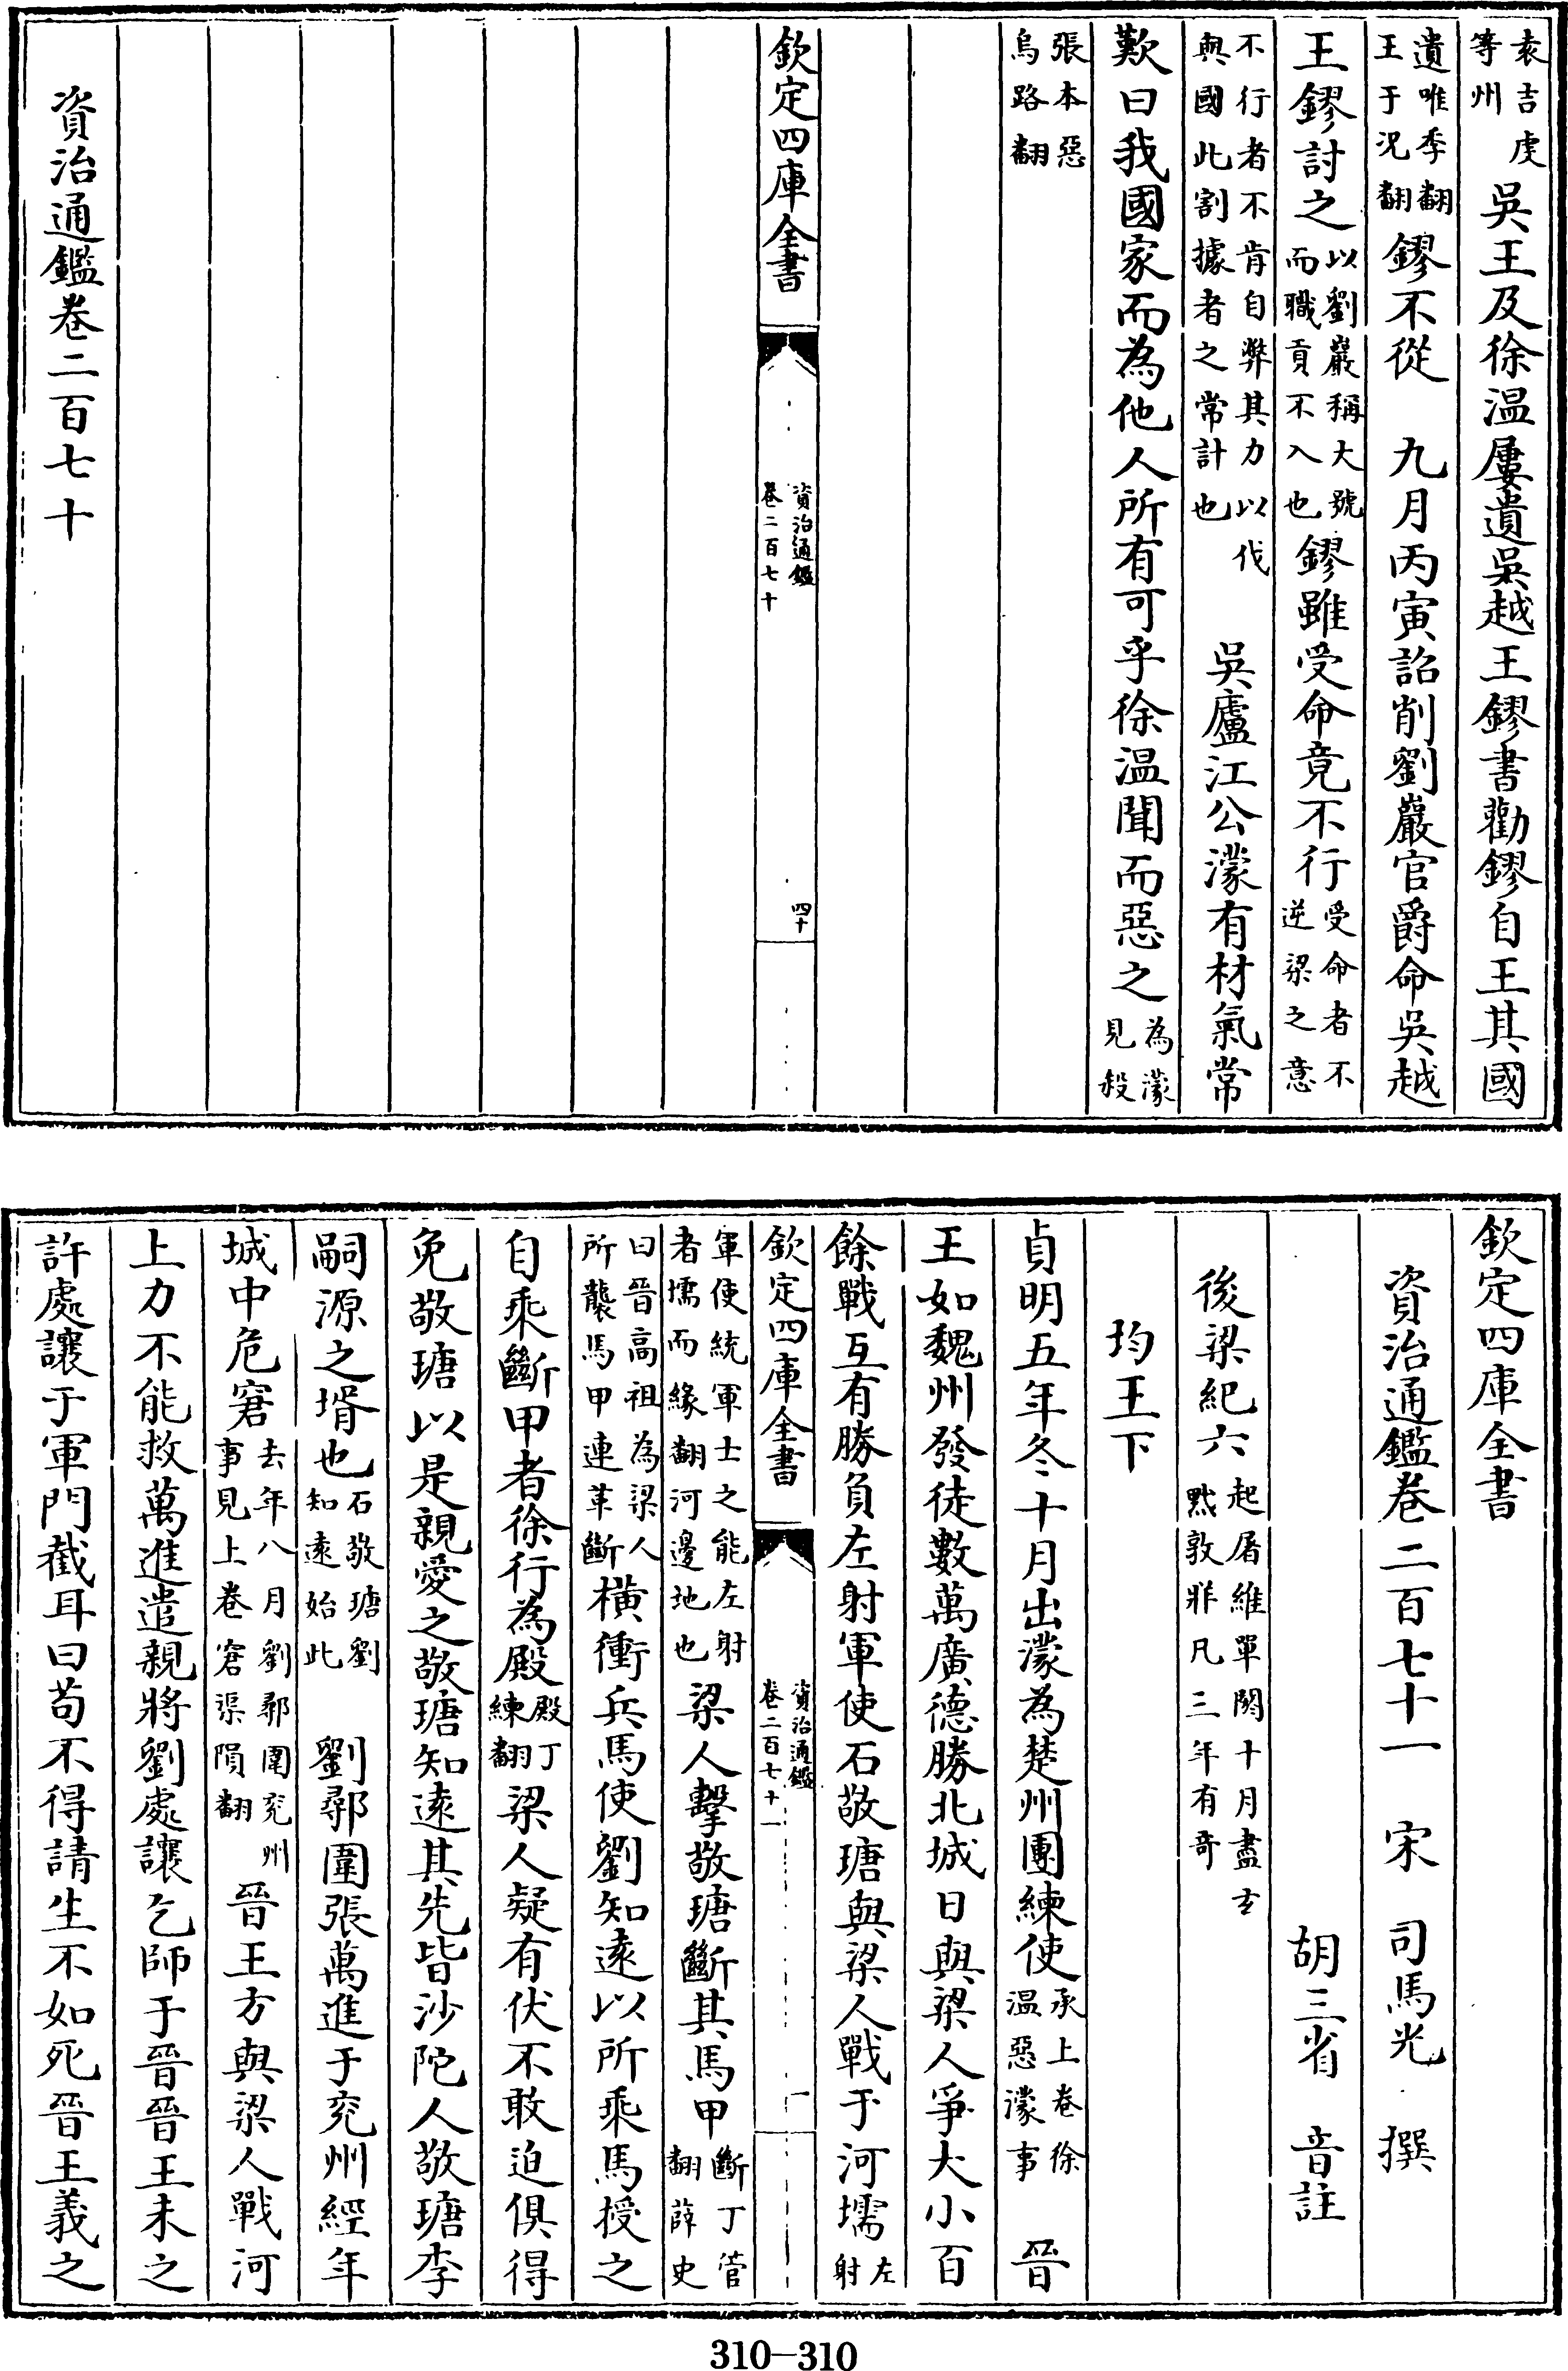 袁吉虔
等州
吳王及徐温屢遺吳越王鏐書勸鏐自王其國
遺唯季翻
王于况翻
鏐不從　九月丙寅詔削劉巖官爵命吳越
王鏐討之
以劉巖稱大號
而職貢不入也
鏐雖受命竟不行
受命者不
逆梁之意
不行者不肯自弊其力以伐
與國此割據者之常計也
吳廬江公濛有材氣常
歎曰我國家而為他人所有可乎徐温聞而惡之
為濛
見殺
張本惡
烏路翻
欽定四庫全書
資治通鑑
卷二百七十
四十
資治通鑑卷二百七十
欽定四庫全書
資治通鑑卷二百七十一　宋　司馬光　撰
胡三省　音註
後梁紀六
起屠維單閼十月盡玄
黓敦牂凡三年有奇
均王下
貞明五年冬十月出濛為楚州團練使
承上卷徐
温惡濛事
晉
王如魏州發徒數萬廣德勝北城日與梁人爭大小百
餘戰互有勝負左射軍使石敬瑭與梁人戰于河壖
左
射
欽定四庫全書
資治通鑑
卷二百七十一
一
軍使統軍士之能左射
者壖而緣翻河邊地也
梁人擊敬瑭斷其馬甲
斷丁管
翻薛史
曰晉高祖為梁人
所襲馬甲連革斷
橫衝兵馬使劉知遠以所乘馬授之
自乘斷甲者徐行為殿
殿丁
練翻
梁人疑有伏不敢迫俱得
免敬瑭以是親愛之敬瑭知遠其先皆沙陀人敬瑭李
嗣源之壻也
石敬瑭劉
知遠始此
劉鄩圍張萬進于兗州經年
城中危窘
去年八月劉鄩圍兗州
事見上卷窘渠隕翻
晉王方與梁人戰河
上力不能救萬進遣親將劉處讓乞師于晉晉王未之
許處讓于軍門截耳曰苟不得請生不如死晉王義之
310—310